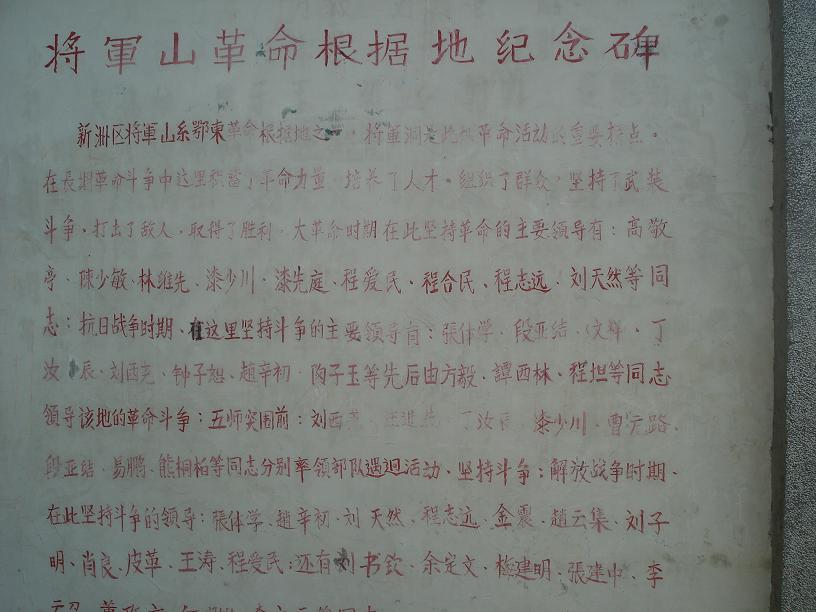 將軍山革命根据地纪念碑
新洲区将軍山系鄂東革命根据地之一，将軍洞是此根革命活动的重要据点。
在長期革命斗争中这里积蓄了革命力量，培养了人才。组织了群众，坚持了武装
斗争，打击了敌人，取得了胜利，大革命时期在此坚持革命的主要领导有：高敬
亭、陳少敏、林维先、漆少川、漆先庭、程爱民、程合民、程志远、刘天然等同
志；抗日战争时期、在这里坚持斗争的主要领导有：張体学、段亚结、文祥、丁
汝辰、刘西尧、钟子恕、趙辛初、陶子玉等先后由方毅、譚西林、程坦等同志
領导该地的革命斗争；五师突围前：刘西尧、汪进先、丁汝辰、漆少川、曹沅路、
段亚结、易鹏、熊桐柏等同志分别率領部队遇迴活动、坚持斗争；解放战争时期、
在此坚持斗争的領导：張体学、趙辛初、刘天然、程志远、金震、趙云集、刘子
明、肖良、皮革、王涛、程爱民；还有刘书钦、余定文、桂建明、張建中、李